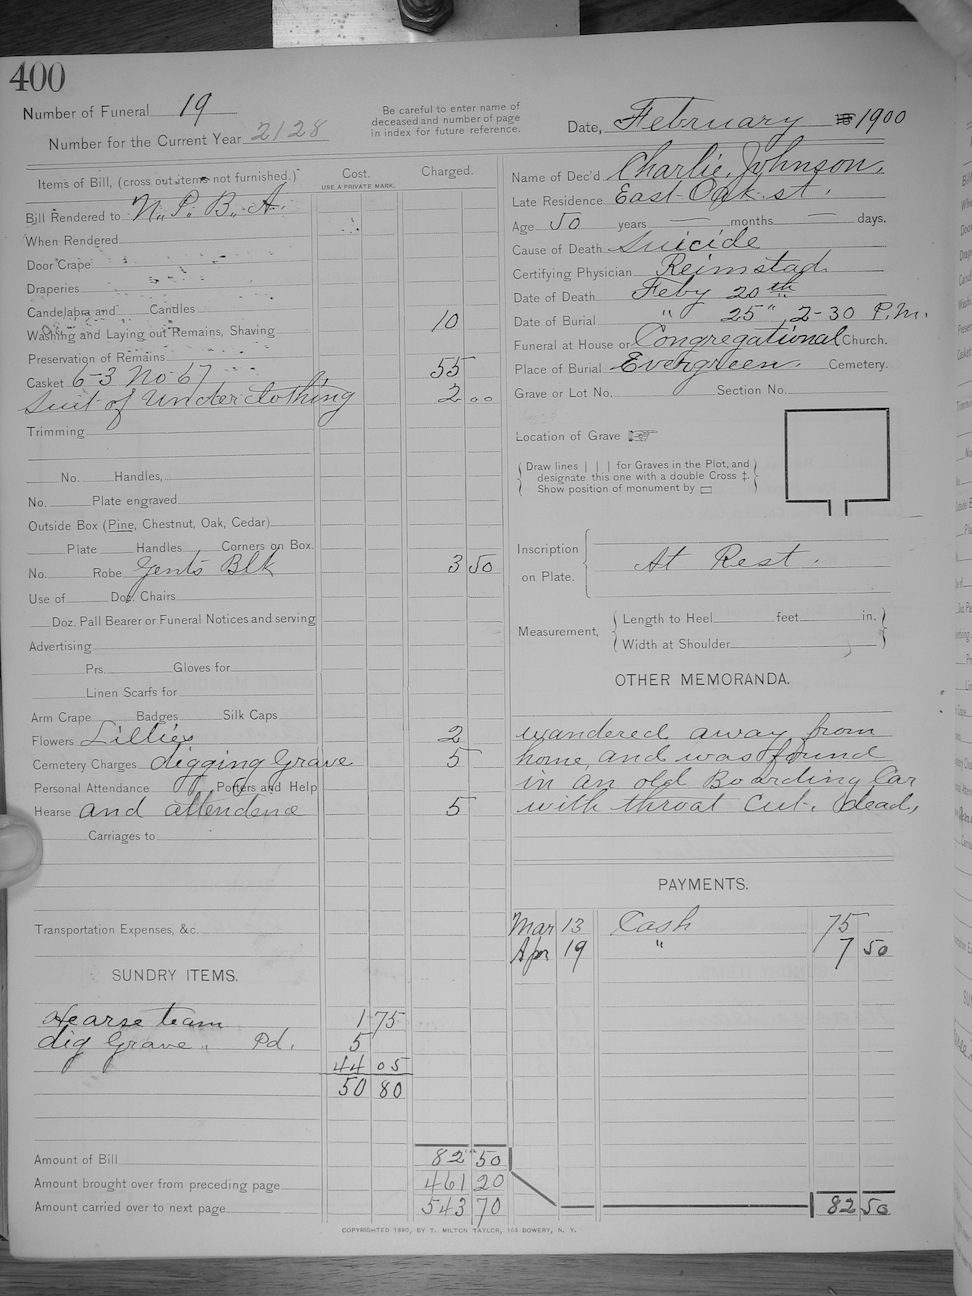 400
Number of Funeral 19
Number for the Current Year 2128
Be careful to enter name of
deceased and number of page
in index for future reference.
Date, February 1900
Items of Bill, (cross out items not furnished.)
Cost.
USE A PRIVATE MARK.
Charged.
Bill Rendered to N. P. B. A.
When Rendered
Door Crape
Draperies
Candelabra and Candles
Washing and Laying out Remains, Shaving 10
Preservation of Remains
Casket 6-3 No 67 55
Suit of Underclothing 2 00
Trimming
No. Handles,
No. Plate engraved
Outside Box (Pine, Chestnut, Oak, Cedar)
Plate Handles Corners on Box.
No. Robe Gents Blk 3 50
Use of Doz. Chairs
Doz. Pall Bearer or Funeral Notices and serving
Advertising
Prs. Gloves for
Linen Scarfs for
Arm Crape Badges Silk Caps
Flowers Lillies 2
Cemetery Charges digging Grave 5
Personal Attendance Porters and Help
Hearse and attendence 5
Carriages to
Transportation Expenses, &c.
SUNDRY ITEMS.
Hearse team 1 75
dig Grave " Pd. 5
44 05
50 80
Amount of Bill 82 50
Amount brought over from preceding page 461 20
Amount carried over to next page 543 70
Name of Dec'd Charlie Johnson.
Late Residence East Oak st.
Age 50 years — months — days.
Cause of Death Suicide
Certifying Physician Reimstad
Date of Death Feby 20th
Date of Burial " 25" 2-30 P.M.
Funeral at House or Congregational Church.
Place of Burial Evergreen. Cemetery.
Grave or Lot No. Section No.
Location of Grave
Draw lines | | | for Graves in the Plot, and
designate this one with a double Cross ‡.
Show position of monument by ▭
Inscription
on Plate.
At Rest.
Measurement,
Length to Heel feet in.
Width at Shoulder
OTHER MEMORANDA.
wandered away from
home, and was found
in an old Boarding Car
with throat cut. dead,
PAYMENTS.
Mar 13 Cash 75
Apr 19 " 7 50
82 50
COPYRIGHTED 1890, BY T. MILTON TAYLOR, 163 BOWERY, N. Y.